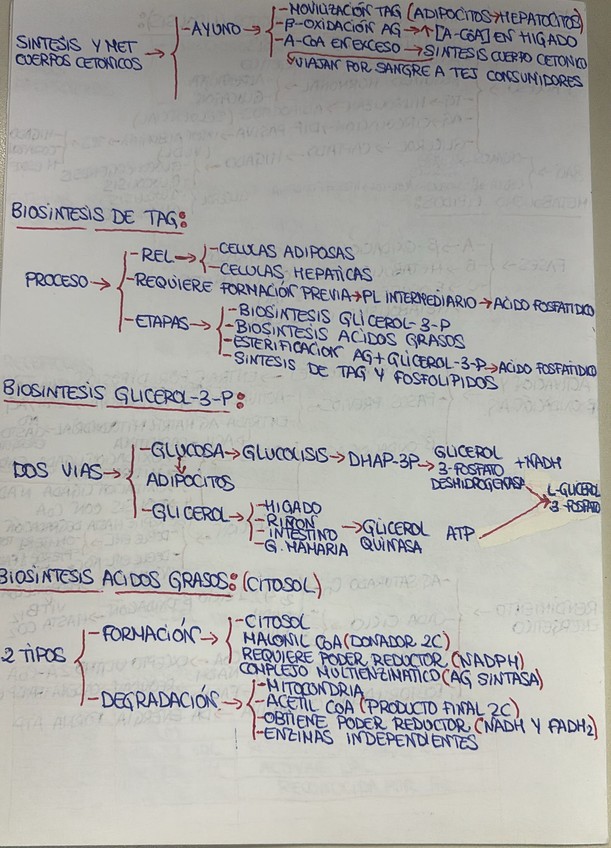 -MOVILIZACIÓN TAG (ADIPOCITOS→HEPATOCITOS)
SINTESIS Y MET CUERPOS CETONICOS → -AYUNO → -β-OXIDACIÓN AG→↑[A-COA] EN HIGADO
-A-COA EN EXCESO → SINTESIS CUERPO CETONICO
VIAJAN POR SANGRE A TEJ CONSUMIDORES
BIOSINTESIS DE TAG:
-REL → -CELULAS ADIPOSAS
-CELULAS HEPATICAS
PROCESO → -REQUIERE FORMACIÓN PREVIA→PL INTERMEDIARIO→ACIDO FOSFATIDICO
-ETAPAS → -BIOSINTESIS GLICEROL-3-P
-BIOSINTESIS ACIDOS GRASOS
-ESTERIFICACION AG+GLICEROL-3-P→ACIDO FOSFATIDICO
-SINTESIS DE TAG Y FOSFOLIPIDOS
BIOSINTESIS GLICEROL-3-P:
DOS VIAS → -GLUCOSA→GLUCOLISIS→DHAP-3P→ GLICEROL 3-FOSFATO DESHIDROGENASA +NADH
↓
ADIPOCITOS
L-GLICEROL 3-FOSFATO
-GLICEROL → -HIGADO
-RIÑON
-INTESTINO
-G. MAMARIA
→GLICEROL QUINASA ATP
BIOSINTESIS ACIDOS GRASOS: (CITOSOL)
2 TIPOS
-FORMACIÓN → -CITOSOL
MALONIL COA (DONADOR 2C)
REQUIERE PODER REDUCTOR (NADPH)
COMPLEJO MULTIENZIMATICO (AG SINTASA)
-DEGRADACIÓN → -MITOCONDRIA
-ACETIL COA (PRODUCTO FINAL 2C)
-OBTIENE PODER REDUCTOR (NADH Y FADH2)
-ENZIMAS INDEPENDIENTES